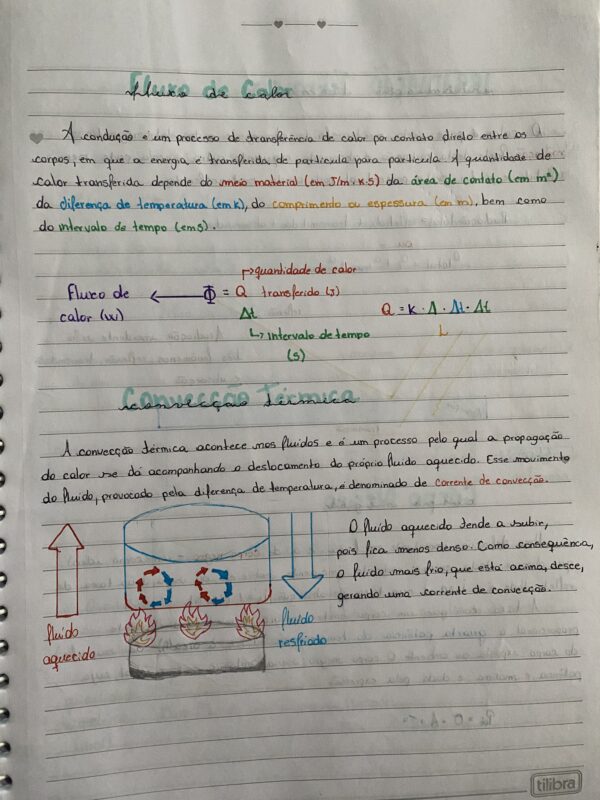 Fluxo de Calor
A condução é um processo de transferência de calor por contato direto entre os
corpos, em que a energia é transferida de partícula para partícula. A quantidade de
calor transferida depende do meio material (em J/m.K.s) da área de contato (em m²)
da diferença de temperatura (em K), do comprimento ou espessura (em m), bem como
do intervalo de tempo (em s).
quantidade de calor
Fluxo de ← Φ = Q transferido (J) Q = K · A · Δt · Δt
calor (W) Δt L
↳ intervalo de tempo
(s)
Convecção Térmica
A convecção térmica acontece nos fluidos e é um processo pelo qual a propagação
do calor se dá acompanhando o deslocamento do próprio fluido aquecido. Esse movimento
do fluido, provocado pela diferença de temperatura, é denominado de corrente de convecção.
O fluido aquecido tende a subir,
pois fica menos denso. Como consequência,
o fluido mais frio, que está acima, desce,
gerando uma corrente de convecção.
fluido
aquecido
fluido
resfriado
tilibra